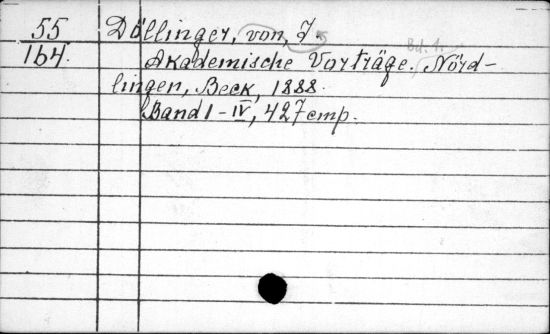 55 Döllinger, von, J.
164. Akademische Vorträge. Bd. 1. Nörd-
lingen, Beck, 1888.
Band I-IV, 427 стр.